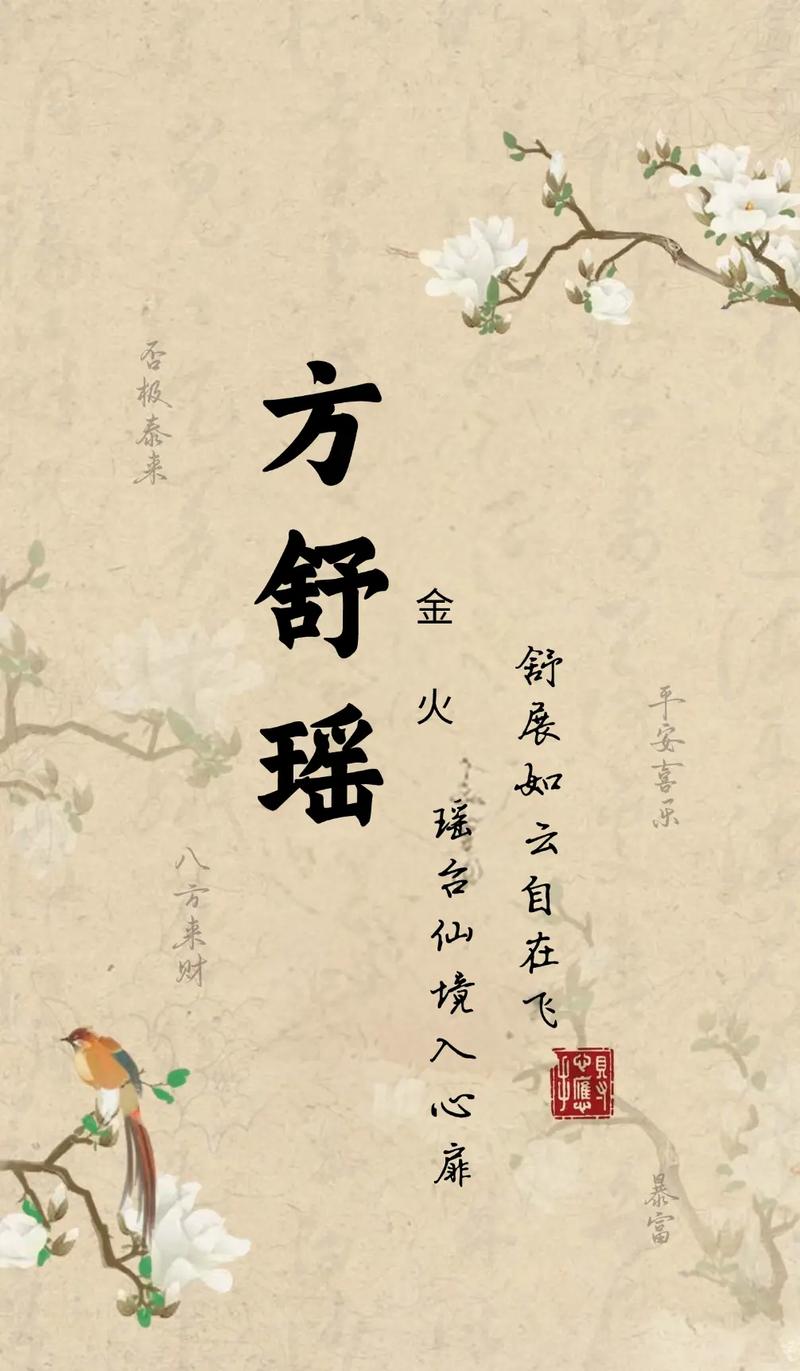 平安喜乐
暴富
舒展如云自在飞
瑶台仙境入心扉
金火
方舒瑶
八方来财
否极泰来